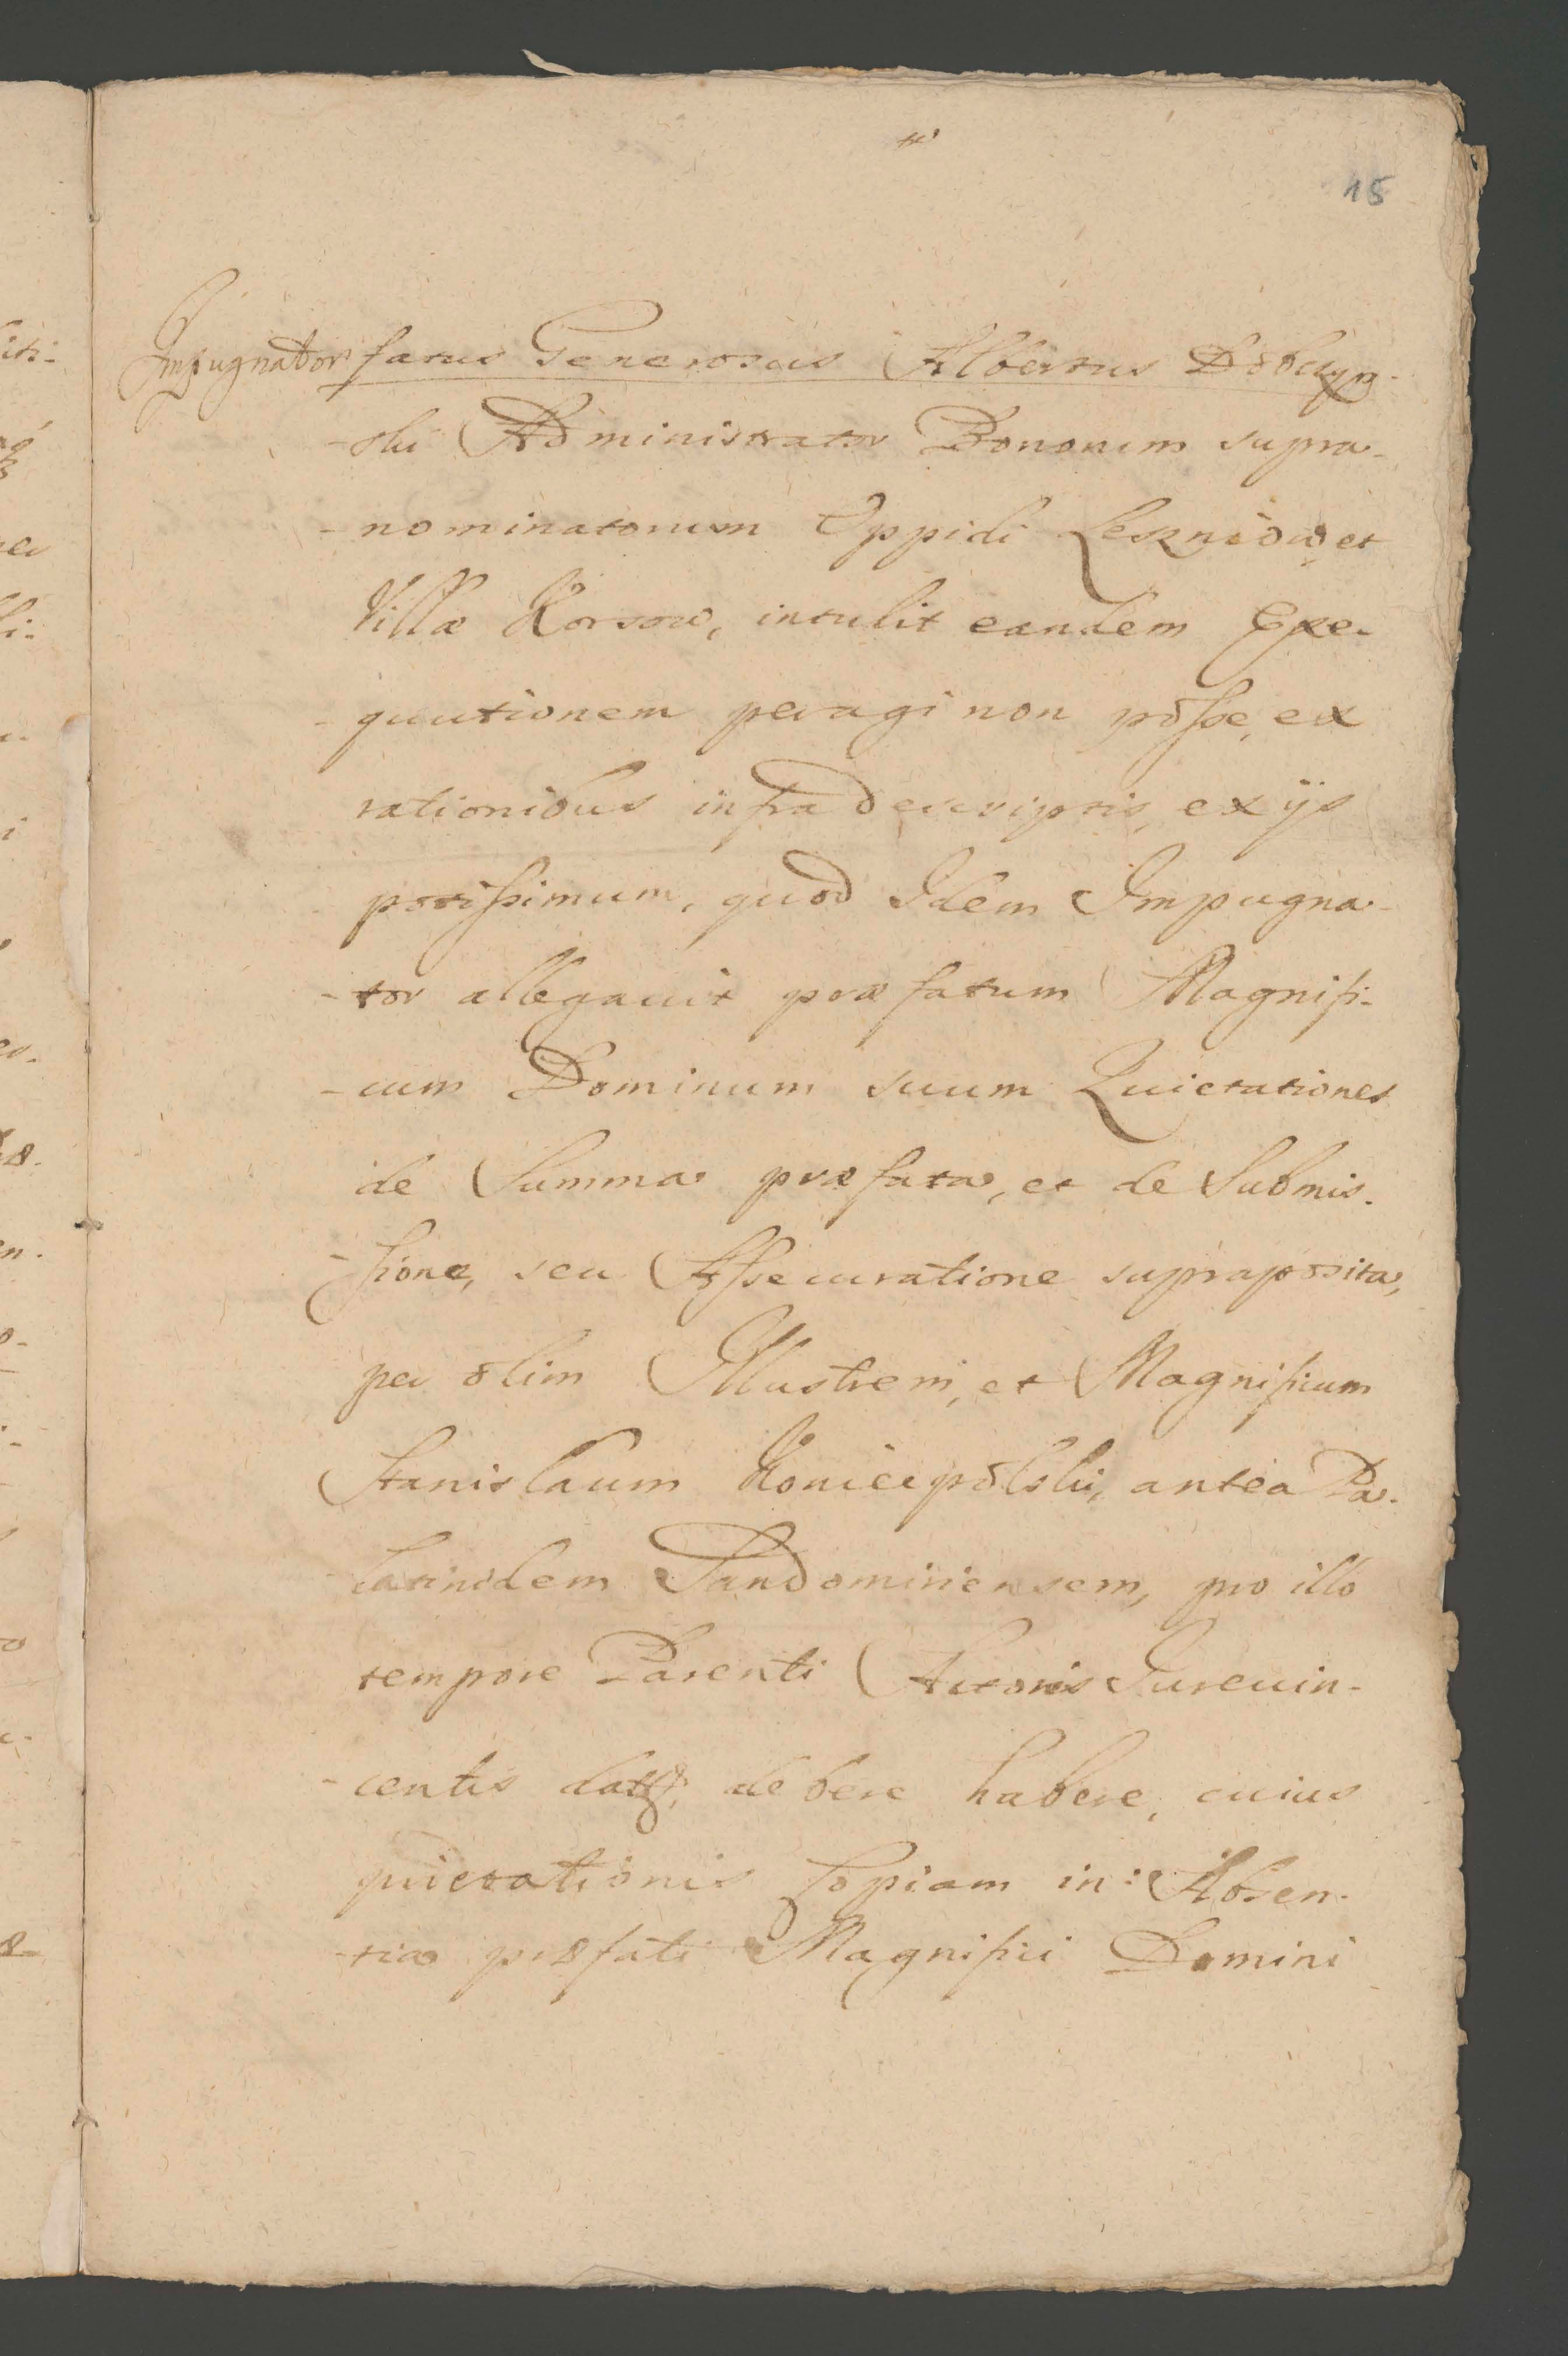 15
Impugnator fatus Generosus Albertus
-ski Administrator Bonorum supra-
-nominatorum Oppidi Leszniow, et
Villæ Korsow, intulit eandem Exe-
-quutionem peragi non posse, ex
rationibus infra descriptis, ex ijs
potissimum, quod Idem Impugna-
-tor allegavit præfatum Magnifi-
-cum Dominum suum Quietationes
de Summa præfata, et de Submis-
-sione, seu Assecuratione supraposita,
per olim Illustrem, et Magnificum
Stanislaum Koniecpolski, antea Pa-
latinidem Sandomiriensem, pro illo
tempore Parenti Actoris Iurevin-
-centis datas, debere habere, cuius
quietationis Copiam in Absen-
-tia præfati Magnifici Domini